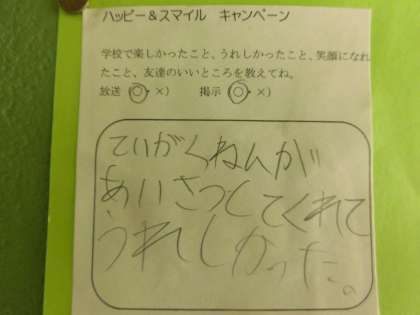 ハッピー＆スマイル　キャンペーン
学校で楽しかったこと、うれしかったこと、笑顔になれ
たこと、友達のいいところを教えてね。
放送（○・×）　　掲示（○・×）
ていがくねんが
あいさつしてくれて
うれしかった。